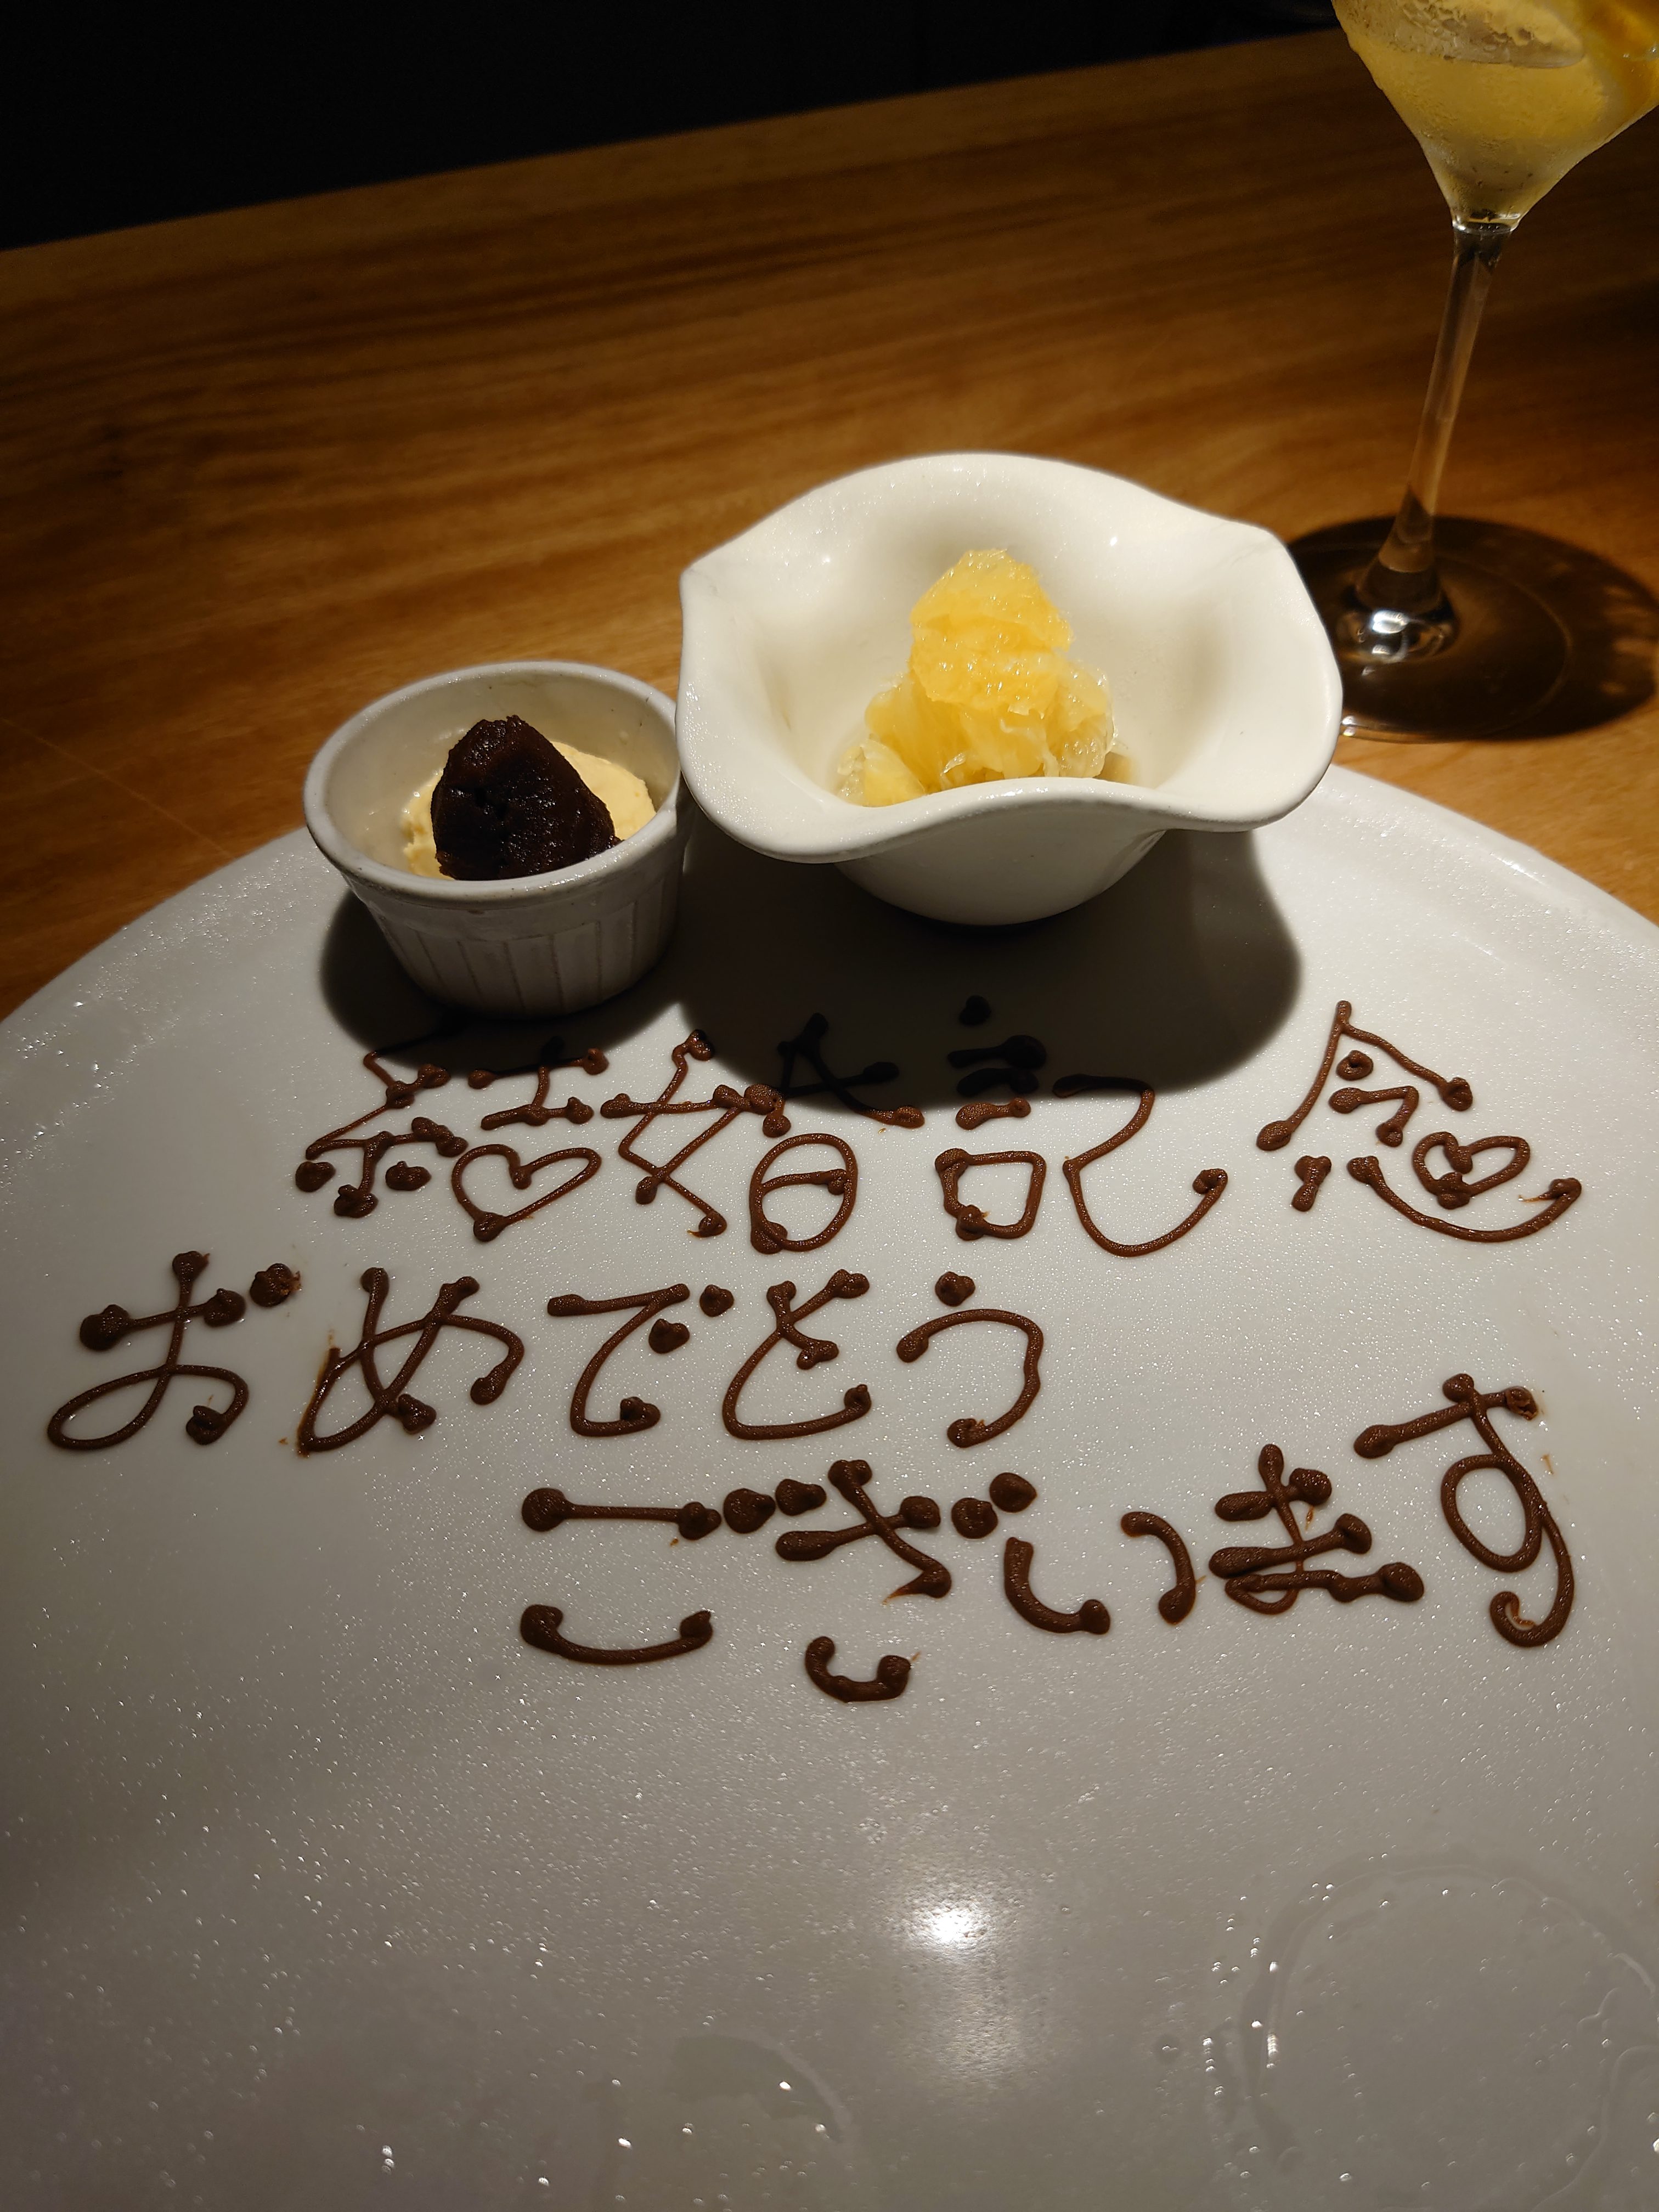 結婚記念
おめでとう
ございます